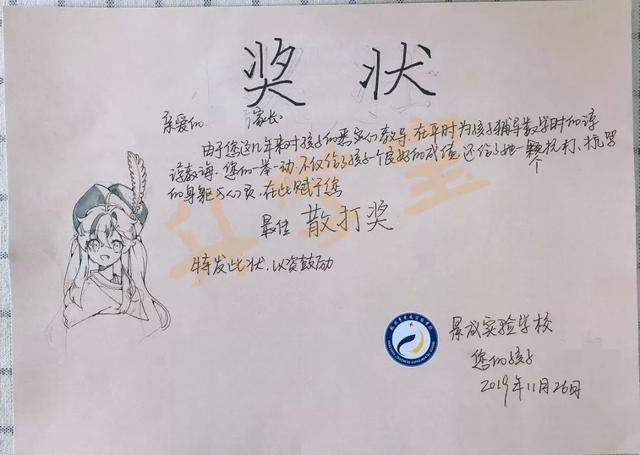 奖 状
亲爱的 家长
由于您这几年来对孩子的悉心教导,在平时为孩子辅导数学时的谆
谆教诲,您的一举一动,不仅给了孩子一个良好的成绩,还给了她一颗抗打、抗骂
个
的身躯与人员,在此赋予您
最佳 散打奖
特发此状,以资鼓励
景成实验学校
您的孩子
2019年11月26日